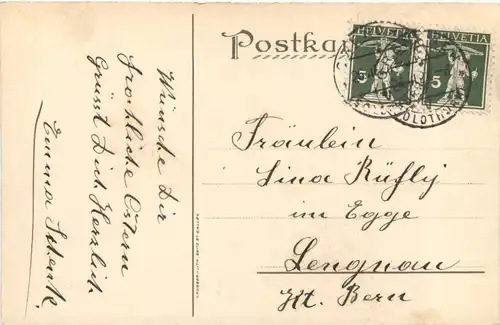 Postka
HELVETIA HELVETIA
5 5
SOLOTHURN
Wünsche Dir
fröhliche Ostern
Grüsst Dich Herzlich
Emma Schenk.
Fräulein
Lina Rüfly
im Egge
Lengnau
Kt. Bern